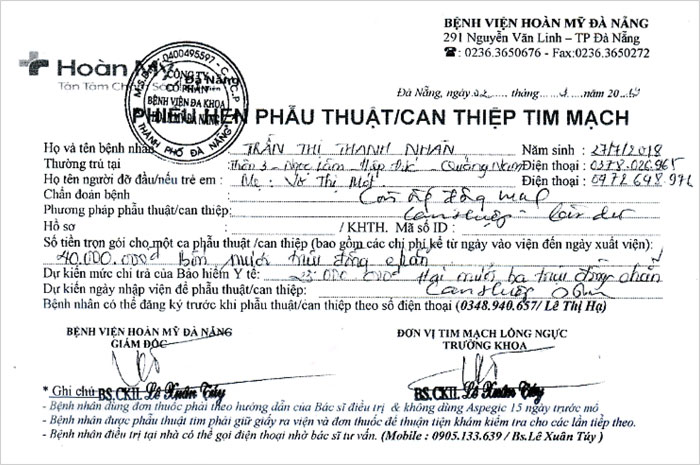 BỆNH VIỆN HOÀN MỸ ĐÀ NẴNG
291 Nguyễn Văn Linh – TP Đà Nẵng
☎: 0236.3650676 - Fax:0236.3650272
Hoàn Mỹ
Đà Nẵng
Tận Tâm Chăm Sóc
M.S.D.N: 0400495597 - C.T.C.P
CÔNG TY
CỔ PHẦN
BỆNH VIỆN ĐA KHOA
THÀNH PHỐ ĐÀ NẴNG
Đà Nẵng, ngày 02 tháng 20
PHIẾU HẸN PHẪU THUẬT/CAN THIỆP TIM MẠCH
Họ và tên bệnh nhân TRẦN THỊ THANH NHÀN Năm sinh : 27/7/2018
Thường trú tại Thôn 3 - Ngọc Lâm - Hiệp Đức - Quảng Nam Điện thoại : 0378.026.965
Họ tên người đỡ đầu/nếu trẻ em : Mẹ : Võ Thị Một Điện thoại : 0972 648 971
Chẩn đoán bệnh : Còn ống động mạch
Phương pháp phẫu thuật/can thiệp: Can thiệp
Hồ sơ : / KHTH. Mã số ID :
Số tiền trọn gói cho một ca phẫu thuật /can thiệp (bao gồm các chi phí kể từ ngày vào viện đến ngày xuất viện):
40.000.000đ Bốn mươi triệu đồng chẵn
Dự kiến mức chi trả của Bảo hiểm Y tế: 23.000 000đ Hai mươi ba triệu đồng chẵn
Dự kiến ngày nhập viện để phẫu thuật/can thiệp:
Bệnh nhân có thể đăng ký trước khi phẫu thuật/can thiệp theo số điện thoại (0348.940.657/ Lê Thị Hạ)
BỆNH VIỆN HOÀN MỸ ĐÀ NẴNG
GIÁM ĐỐC
ĐƠN VỊ TIM MẠCH LỒNG NGỰC
TRƯỞNG KHOA
BS.CKII. Lê Xuân Túy
BS.CKII. Lê Xuân Túy
* Ghi chú
- Bệnh nhân dùng đơn thuốc phải theo hướng dẫn của Bác sĩ điều trị & không dùng Aspegic 15 ngày trước mổ
- Bệnh nhân được phẫu thuật tim phải giữ giấy ra viện và đơn thuốc để thuận tiện khám kiểm tra cho các lần tiếp theo.
- Bệnh nhân điều trị tại nhà có thể gọi điện thoại nhờ bác sĩ tư vấn. (Mobile : 0905.133.639 / Bs.Lê Xuân Túy )